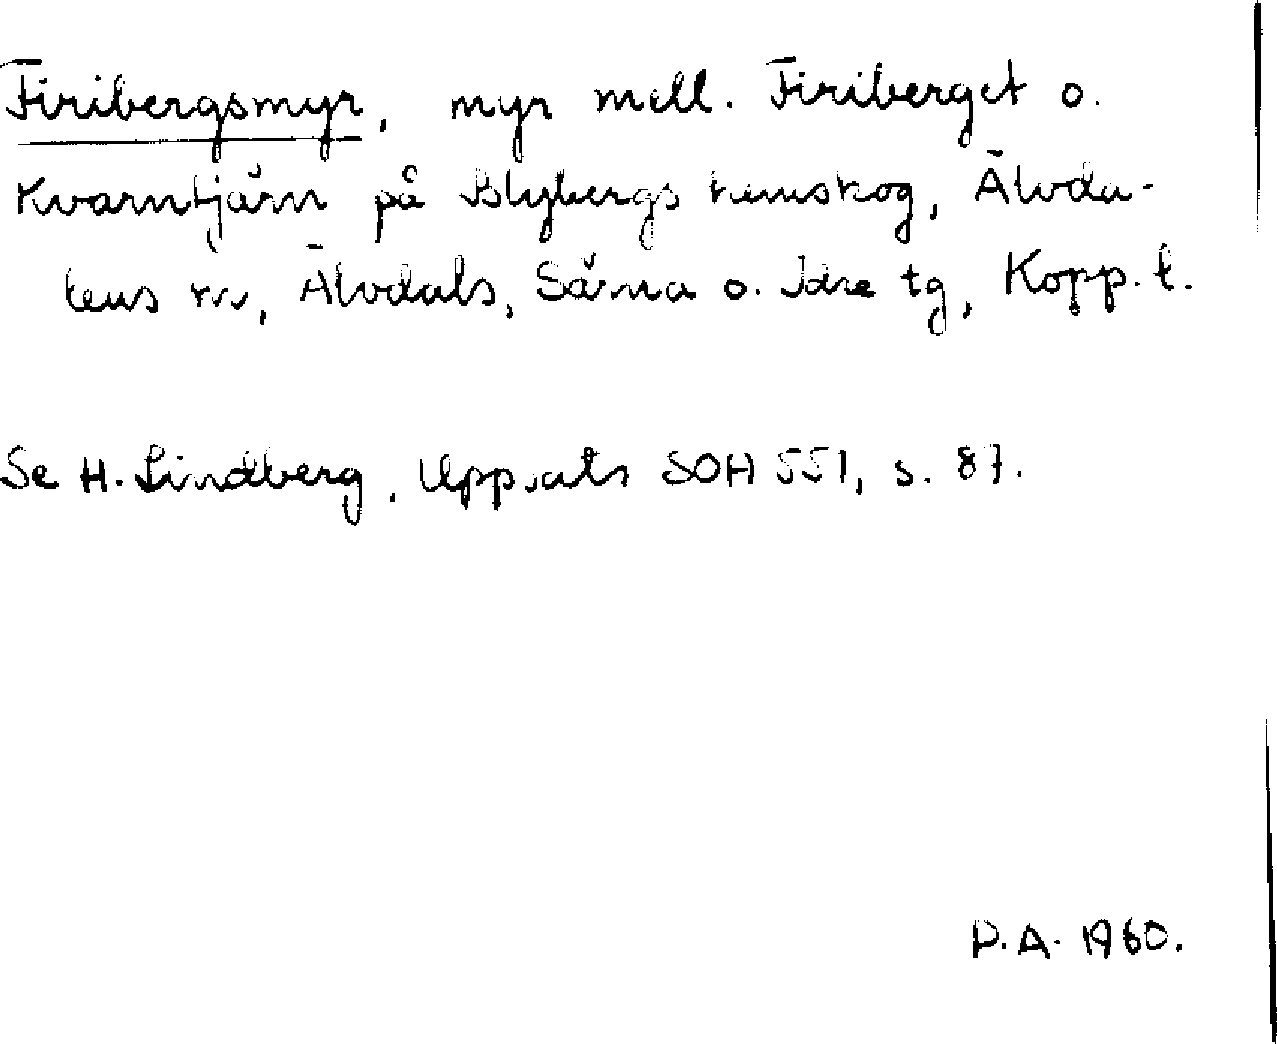 Firibergsmyr, myr mell. Firiberget o.
Kvarntjärn på Blybergs hemskog, Älvda-
lens sn, Älvdals, Särna o. Idre tg, Kopp. l.
Se H. Lindberg, Uppsats SOH 551, s. 87.
D.A. 1960.